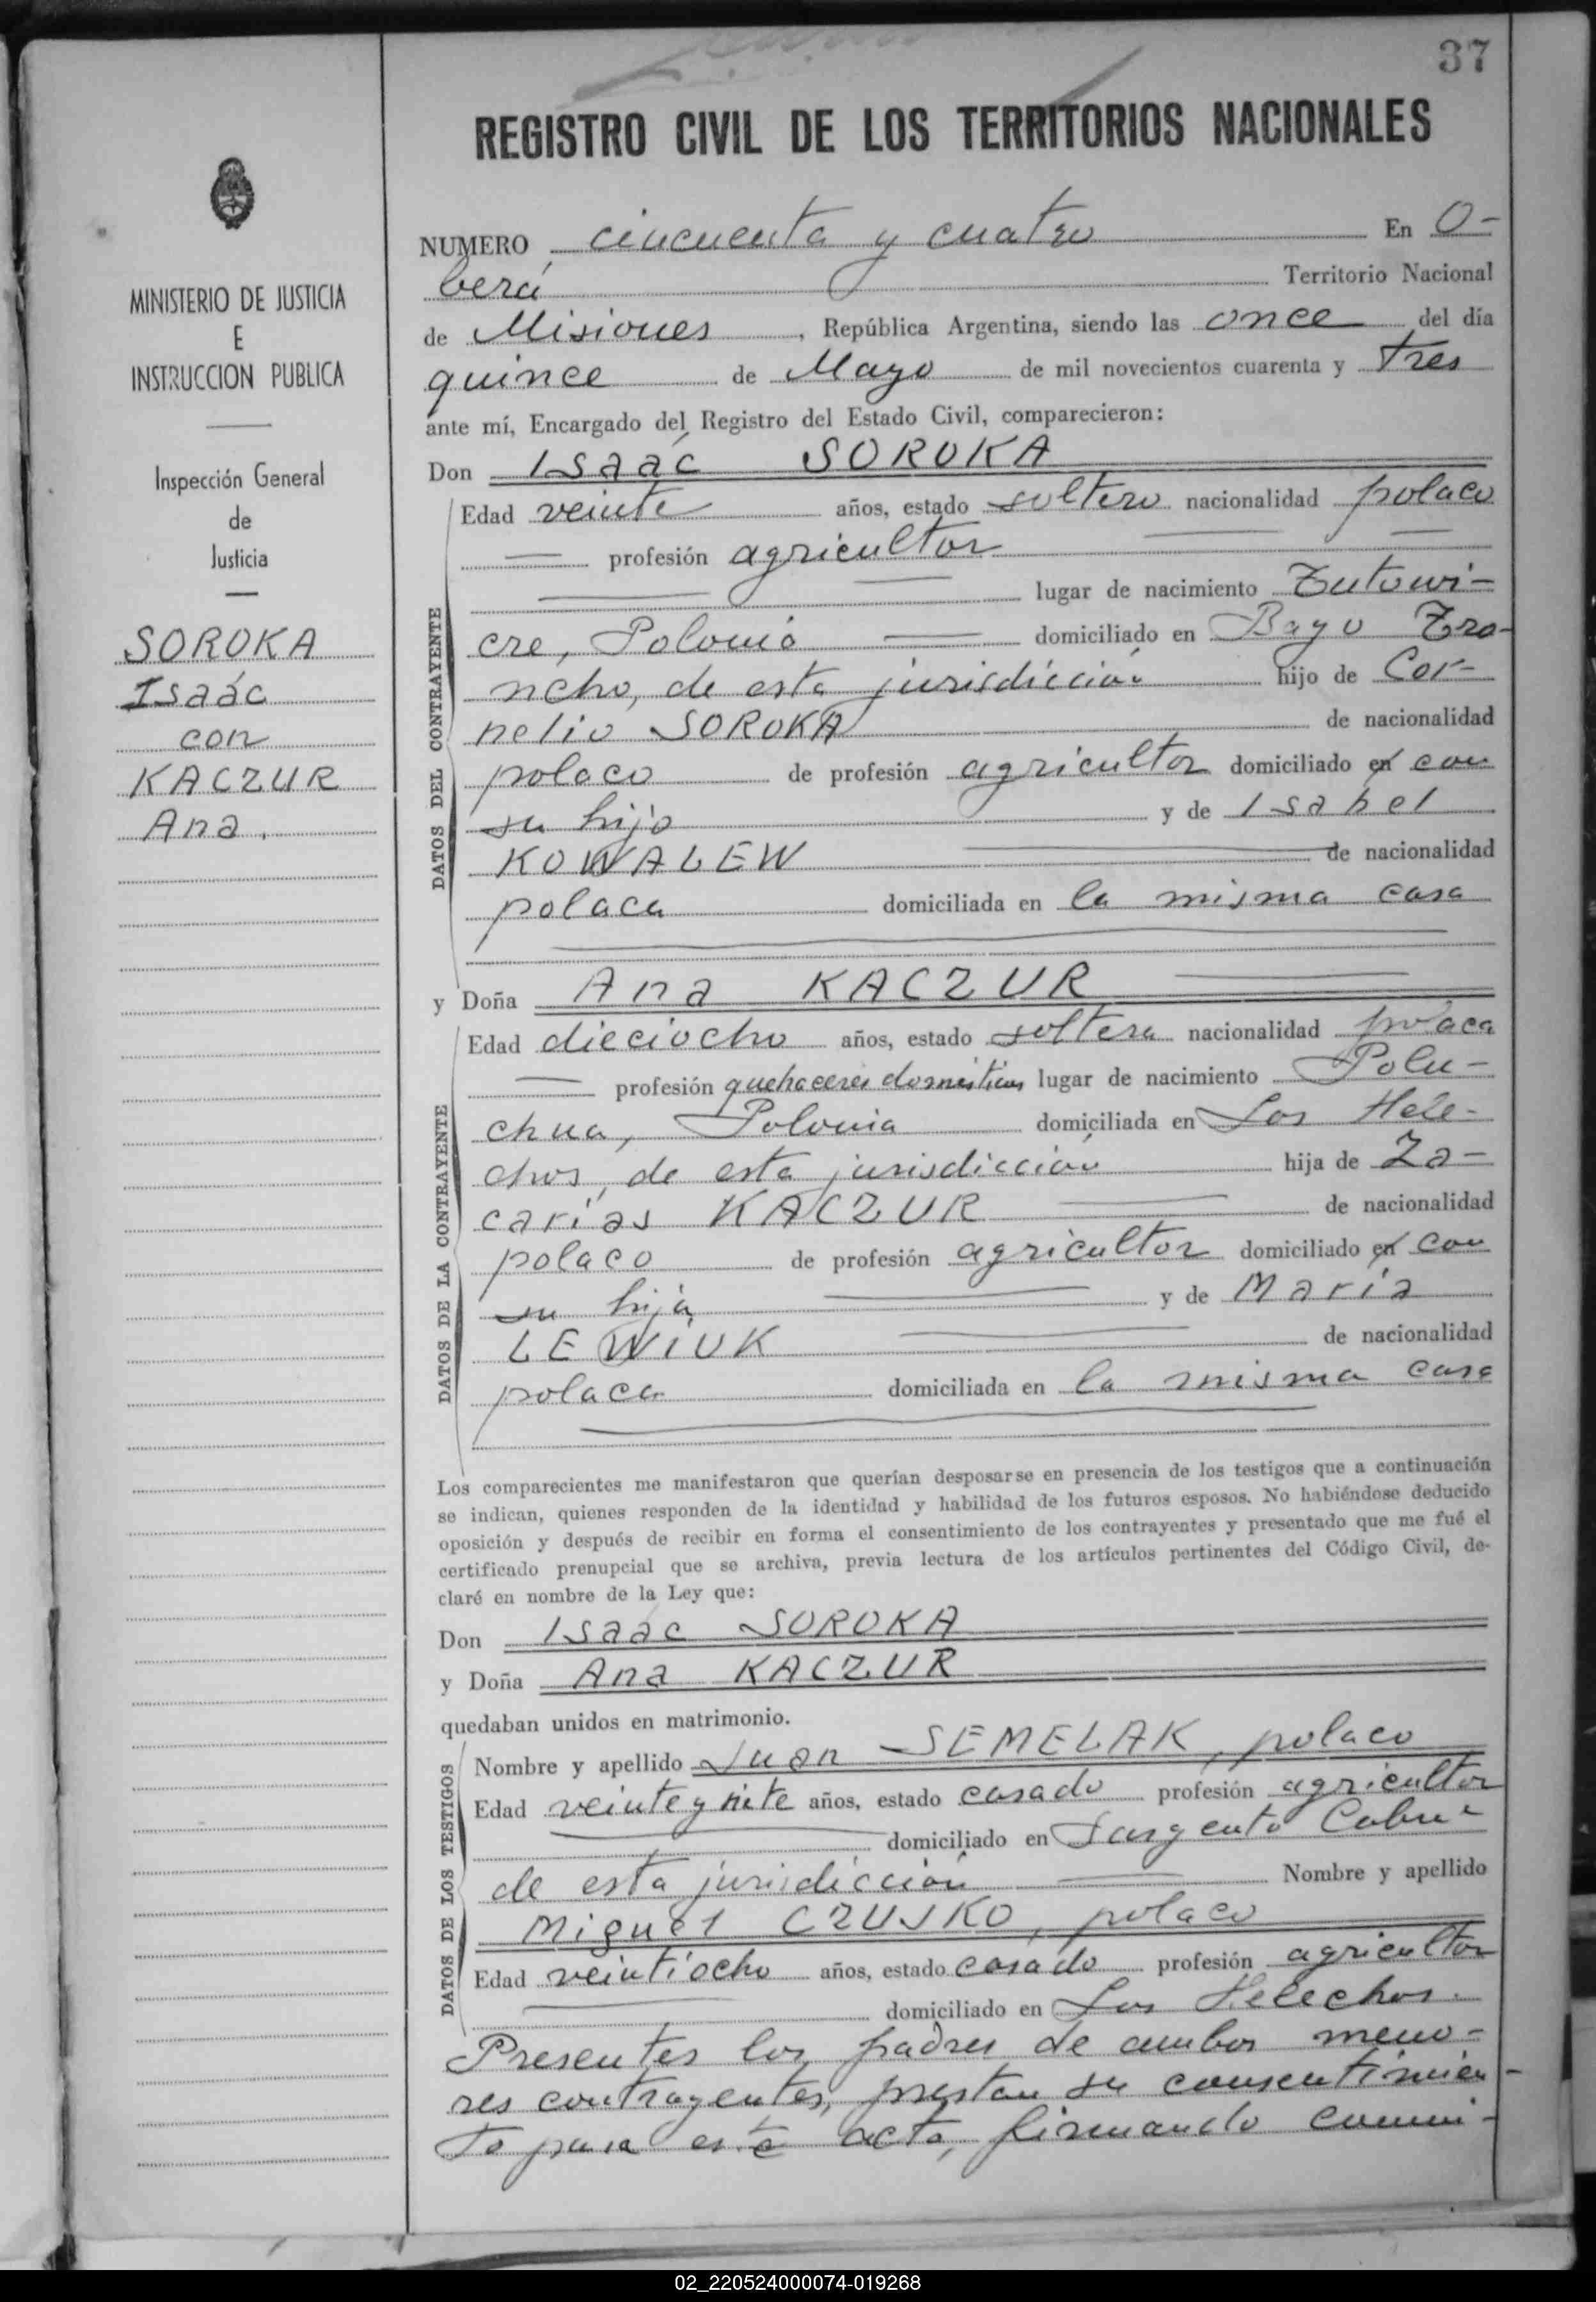 37
REGISTRO CIVIL DE LOS TERRITORIOS NACIONALES
MINISTERIO DE JUSTICIA
E
INSTRUCCION PUBLICA
Inspección General
de
Justicia
SOROKA
Isaác
con
KACZUR
Ana.
NUMERO cincuenta y cuatro En O-
berá Territorio Nacional
de Misiones, República Argentina, siendo las once del día
quince de Mayo de mil novecientos cuarenta y tres
ante mí, Encargado del Registro del Estado Civil, comparecieron:
Don Isaác SOROKA
DATOS DEL CONTRAYENTE
Edad veinte años, estado soltero nacionalidad polaco
profesión agricultor
lugar de nacimiento Tutowi-
cre, Polonia domiciliado en Bayo Tro-
ncho, de esta jurisdicción hijo de Cor-
nelio SOROKA de nacionalidad
polaco de profesión agricultor domiciliado en con
su hijo y de Isabel
KOWALEW de nacionalidad
polaca domiciliada en la misma casa
y Doña Ana KACZUR
DATOS DE LA CONTRAYENTE
Edad dieciocho años, estado soltera nacionalidad polaca
profesión quehaceres domésticos lugar de nacimiento Polu-
chna, Polonia domiciliada en Los Hele-
chos, de esta jurisdicción hija de Za-
carías KACZUR de nacionalidad
polaco de profesión agricultor domiciliado en con
su hija y de María
LEWIUK de nacionalidad
polaca domiciliada en la misma casa
Los comparecientes me manifestaron que querían desposarse en presencia de los testigos que a continuación
se indican, quienes responden de la identidad y habilidad de los futuros esposos. No habiéndose deducido
oposición y después de recibir en forma el consentimiento de los contrayentes y presentado que me fué el
certificado prenupcial que se archiva, previa lectura de los artículos pertinentes del Código Civil, de-
claré en nombre de la Ley que:
Don Isaác SOROKA
y Doña Ana KACZUR
quedaban unidos en matrimonio.
DATOS DE LOS TESTIGOS
Nombre y apellido Juan SEMELAK, polaco
Edad veinte y siete años, estado casado profesión agricultor
domiciliado en Sargento Cabral
de esta jurisdicción Nombre y apellido
Miguel CZUJKO, polaco
Edad veintiocho años, estado casado profesión agricultor
domiciliado en Los Helechos.
Presentes los padres de ambos meno-
res contrayentes, prestan su consentimien-
to para este acto, firmando conmi-
02_220524000074-019268